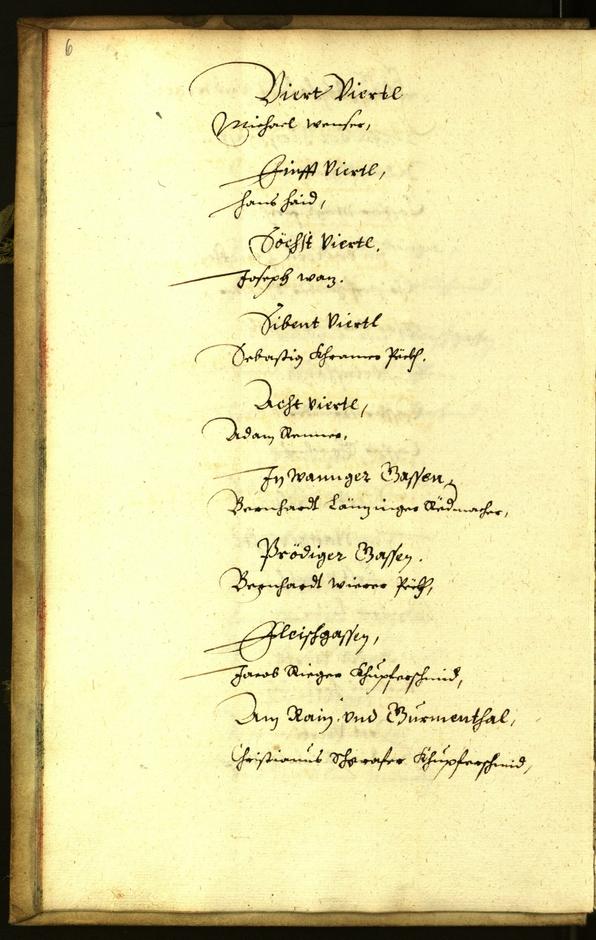 6
Viert Viertl
Michael Wenser,
Finfft Viertl,
Hans Haid,
Söchst Viertl.
Joseph Wan.
Sibent Viertl
Sebastig Khramer Pöckh.
Acht Viertl,
Adam Renner,
In Wannger Gassen,
Bernhardt Länzinger Rëdmacher,
Prödiger Gassen.
Bernhardt Wierer Pöckh,
Fleischgassen,
Jacob Rieger Khupferschmid,
Am Rain, und Gurmenthal,
Christianus Khupferschmid,